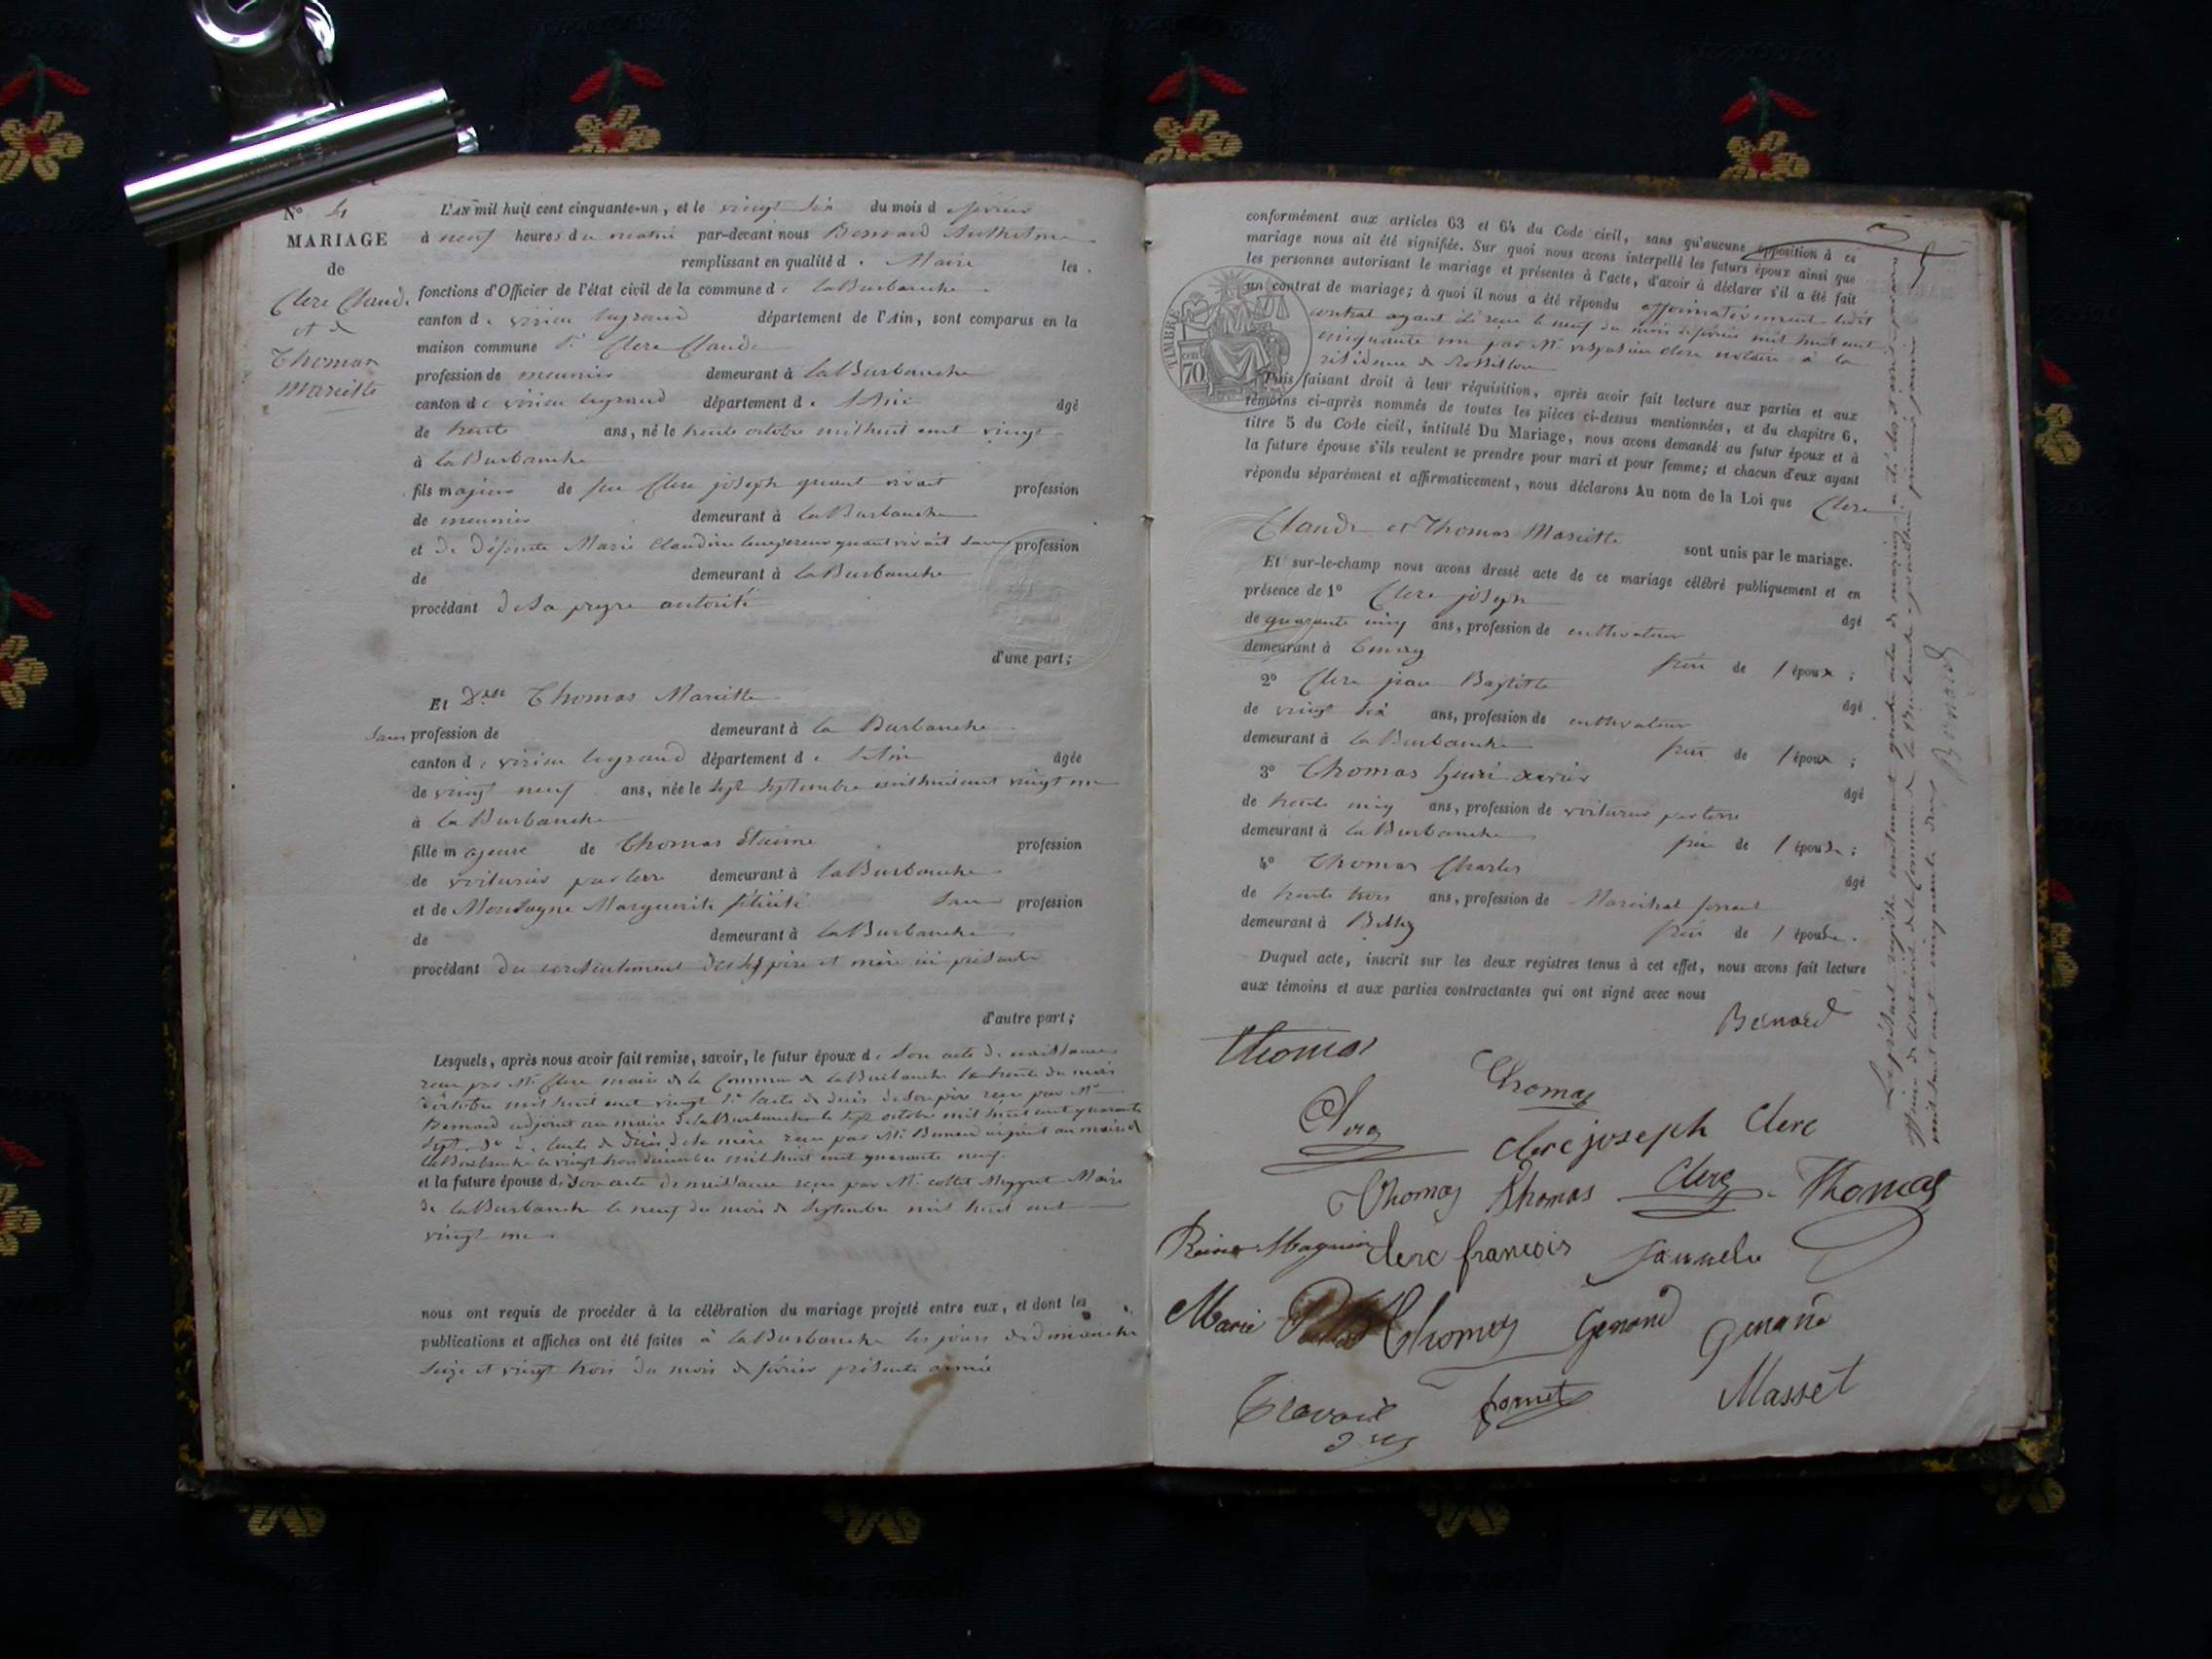 N° 4
MARIAGE
de
Clerc Claude
et de
Thomas
Mariette
L'AN mil huit cent cinquante-un, et le vingt six du mois d fevrier
à neuf heures du matin par-devant nous Bernard Anthelme
remplissant en qualité de Maire les
fonctions d'Officier de l'état civil de la commune de laBurbanche
canton de virieu legrand département de l'Ain, sont comparus en la
maison commune Sr Clerc Claude
profession de meunier demeurant à laBurbanche
canton de virieu legrand département de l'Ain âgé
de trente ans, né le trente octobre mil huit cent vingt
à laBurbanche
fils majeur de feu Clerc joseph quant vivait profession
de meunier demeurant à laBurbanche
et de défunte Marie Claudine quant vivait sans profession
de demeurant à laBurbanche
procédant de sa propre autorité
d'une part;
Et Dlle Thomas Mariette
sans profession de demeurant à la Burbanche
canton de virieu legrand département de l'Ain âgée
de vingt neuf ans, née le sept septembre mil huit cent vingt un
à la Burbanche
fille majeure de Thomas profession
de voiturier par terre demeurant à laBurbanche
et de Montagne Marguerite félicité sans profession
de demeurant à laBurbanche
procédant du consentement de ses père et mère ici présents
d'autre part;
Lesquels, après nous avoir fait remise, savoir, le futur époux de son acte de naissance
reçu par Mr Clerc maire de la Commune de laBurbanche le trente du mois
d'octobre mil huit cent vingt l'acte de décès de son père reçu par Mr
Bernard adjoint au maire de laBurbanche le sept octobre mil huit cent quarante
sept l'acte de décès de sa mère reçu par Mr adjoint au maire de
laBurbanche le vingt trois décembre mil huit cent quarante neuf.
et la future épouse de son acte de naissance reçu par Mr collet Meygret Maire
de laBurbanche le neuf du mois de septembre mil huit cent
vingt un
nous ont requis de procéder à la célébration du mariage projeté entre eux, et dont les
publications et affiches ont été faites à laBurbanche les jours de dimanche
seize et vingt trois du mois de février présente année
conformément aux articles 63 et 64 du Code civil, sans qu'aucune opposition à ce
mariage nous ait été signifiée. Sur quoi nous avons interpellé les futurs époux ainsi que
les personnes autorisant le mariage et présentes à l'acte, d'avoir à déclarer s'il a été fait
un contrat de mariage; à quoi il nous a été répondu affirmativement ledit
contrat ayant été reçu le neuf du mois de février mil huit cent
cinquante un par Mr vespasien clerc notaire à la
résidence de Rossillon
TIMBRE
70
cen
Puis faisant droit à leur réquisition, après avoir fait lecture aux parties et aux
témoins ci-après nommés de toutes les pièces ci-dessus mentionnées, et du chapitre 6,
titre 5 du Code civil, intitulé Du Mariage, nous avons demandé au futur époux et à
la future épouse s'ils veulent se prendre pour mari et pour femme; et chacun d'eux ayant
répondu séparément et affirmativement, nous déclarons Au nom de la Loi que Clerc
Claude et Thomas Mariette sont unis par le mariage.
Et sur-le-champ nous avons dressé acte de ce mariage célébré publiquement et en
présence de 1° Clerc joseph âgé
de quarante cinq ans, profession de cultivateur
demeurant à Tenay frère de l'époux;
2° Clerc jean Baptiste âgé
de vingt six ans, profession de cultivateur
demeurant à laBurbanche frère de l'époux;
3° Thomas henri xavier âgé
de trente cinq ans, profession de voiturier par terre
demeurant à laBurbanche frère de l'épouse;
4° Thomas Charles âgé
de trente trois ans, profession de Maréchal ferrant
demeurant à Belley frère de l'épouse.
Duquel acte, inscrit sur les deux registres tenus à cet effet, nous avons fait lecture
aux témoins et aux parties contractantes qui ont signé avec nous
Bernard
Thomas
Thomas
Clerc
clerc joseph Clerc
Thomas Thomas Clerc Thomas
Reine Magnin clerc francois
Marie Thomas Genand Genand
Fornet Masset
Le présent registre contenant quatre actes de mariage a été clos et arrêté par nous
Maire de la Commune de laBurbanche premier janvier
mil huit cent cinquante deux
Bernard